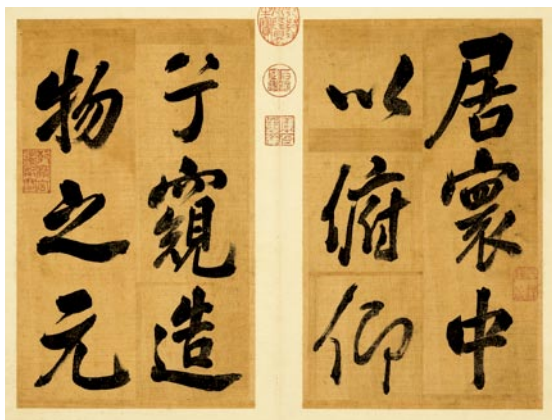 居寰中
以俯仰
兮窺造
物之元